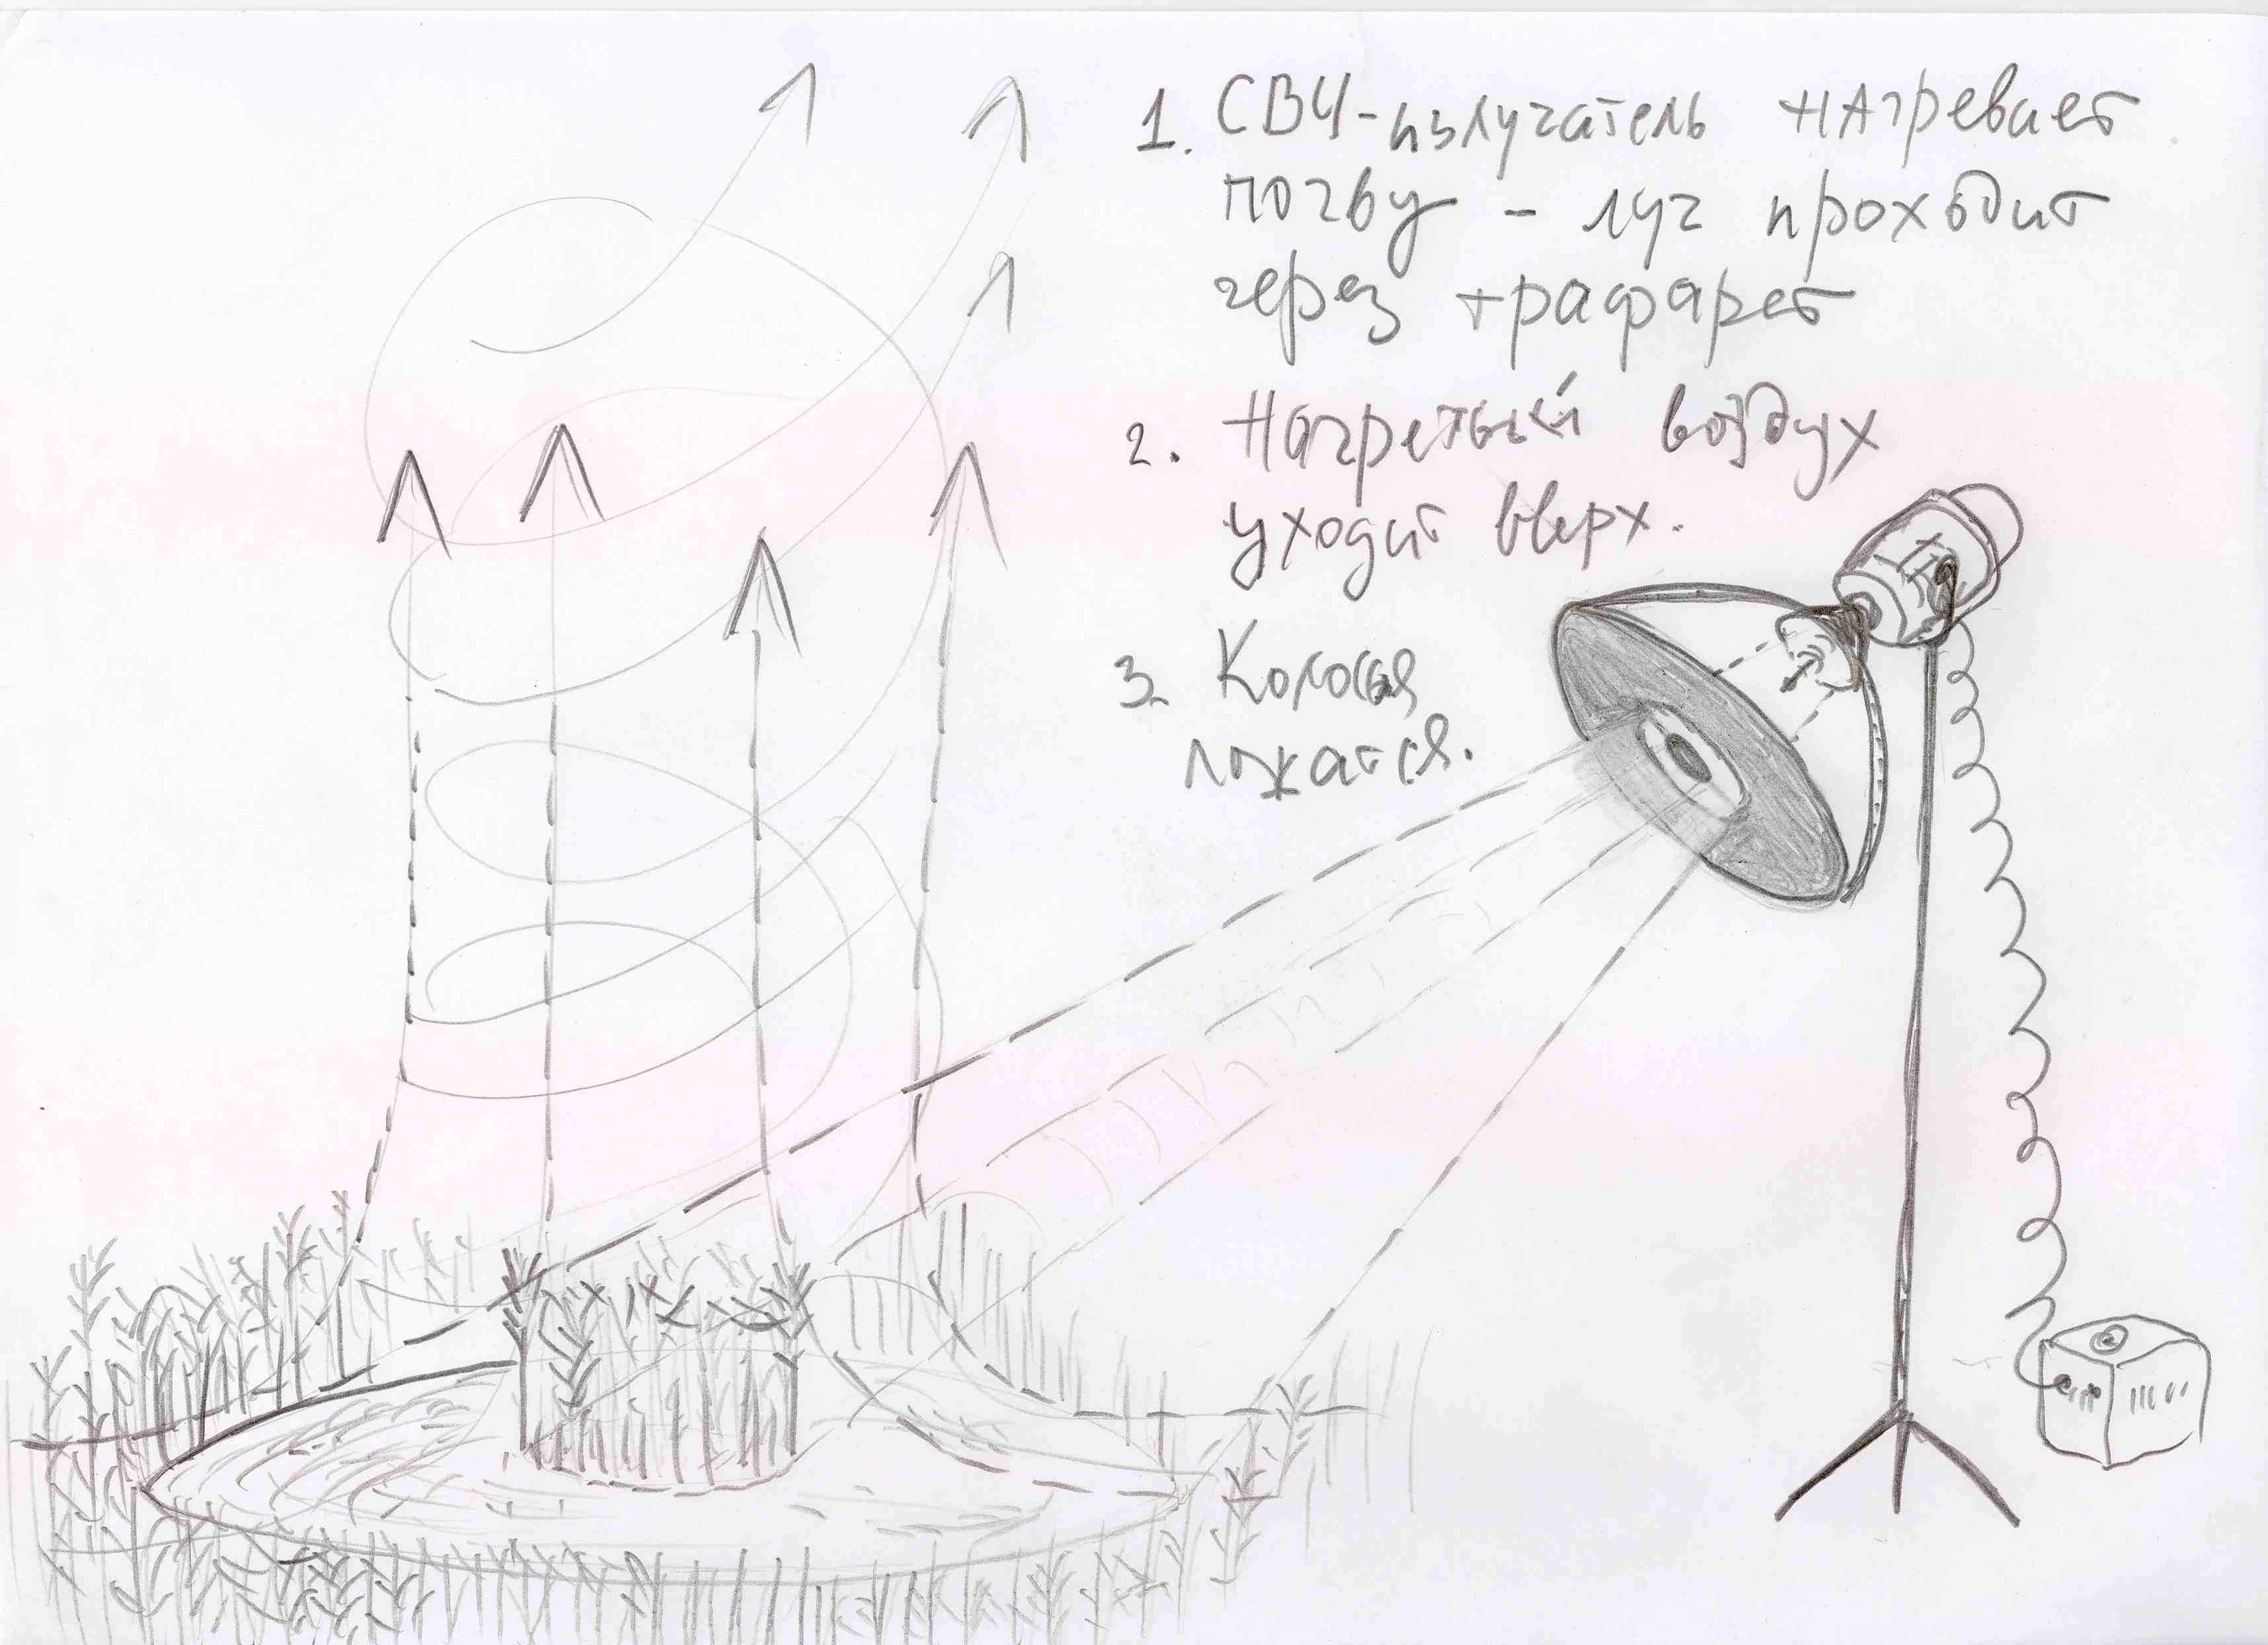 1. СВЧ-излучатель нагревает
почву - луч проходит
через трафарет
2. Нагретый воздух
уходит вверх.
3. Колосья
ложатся.